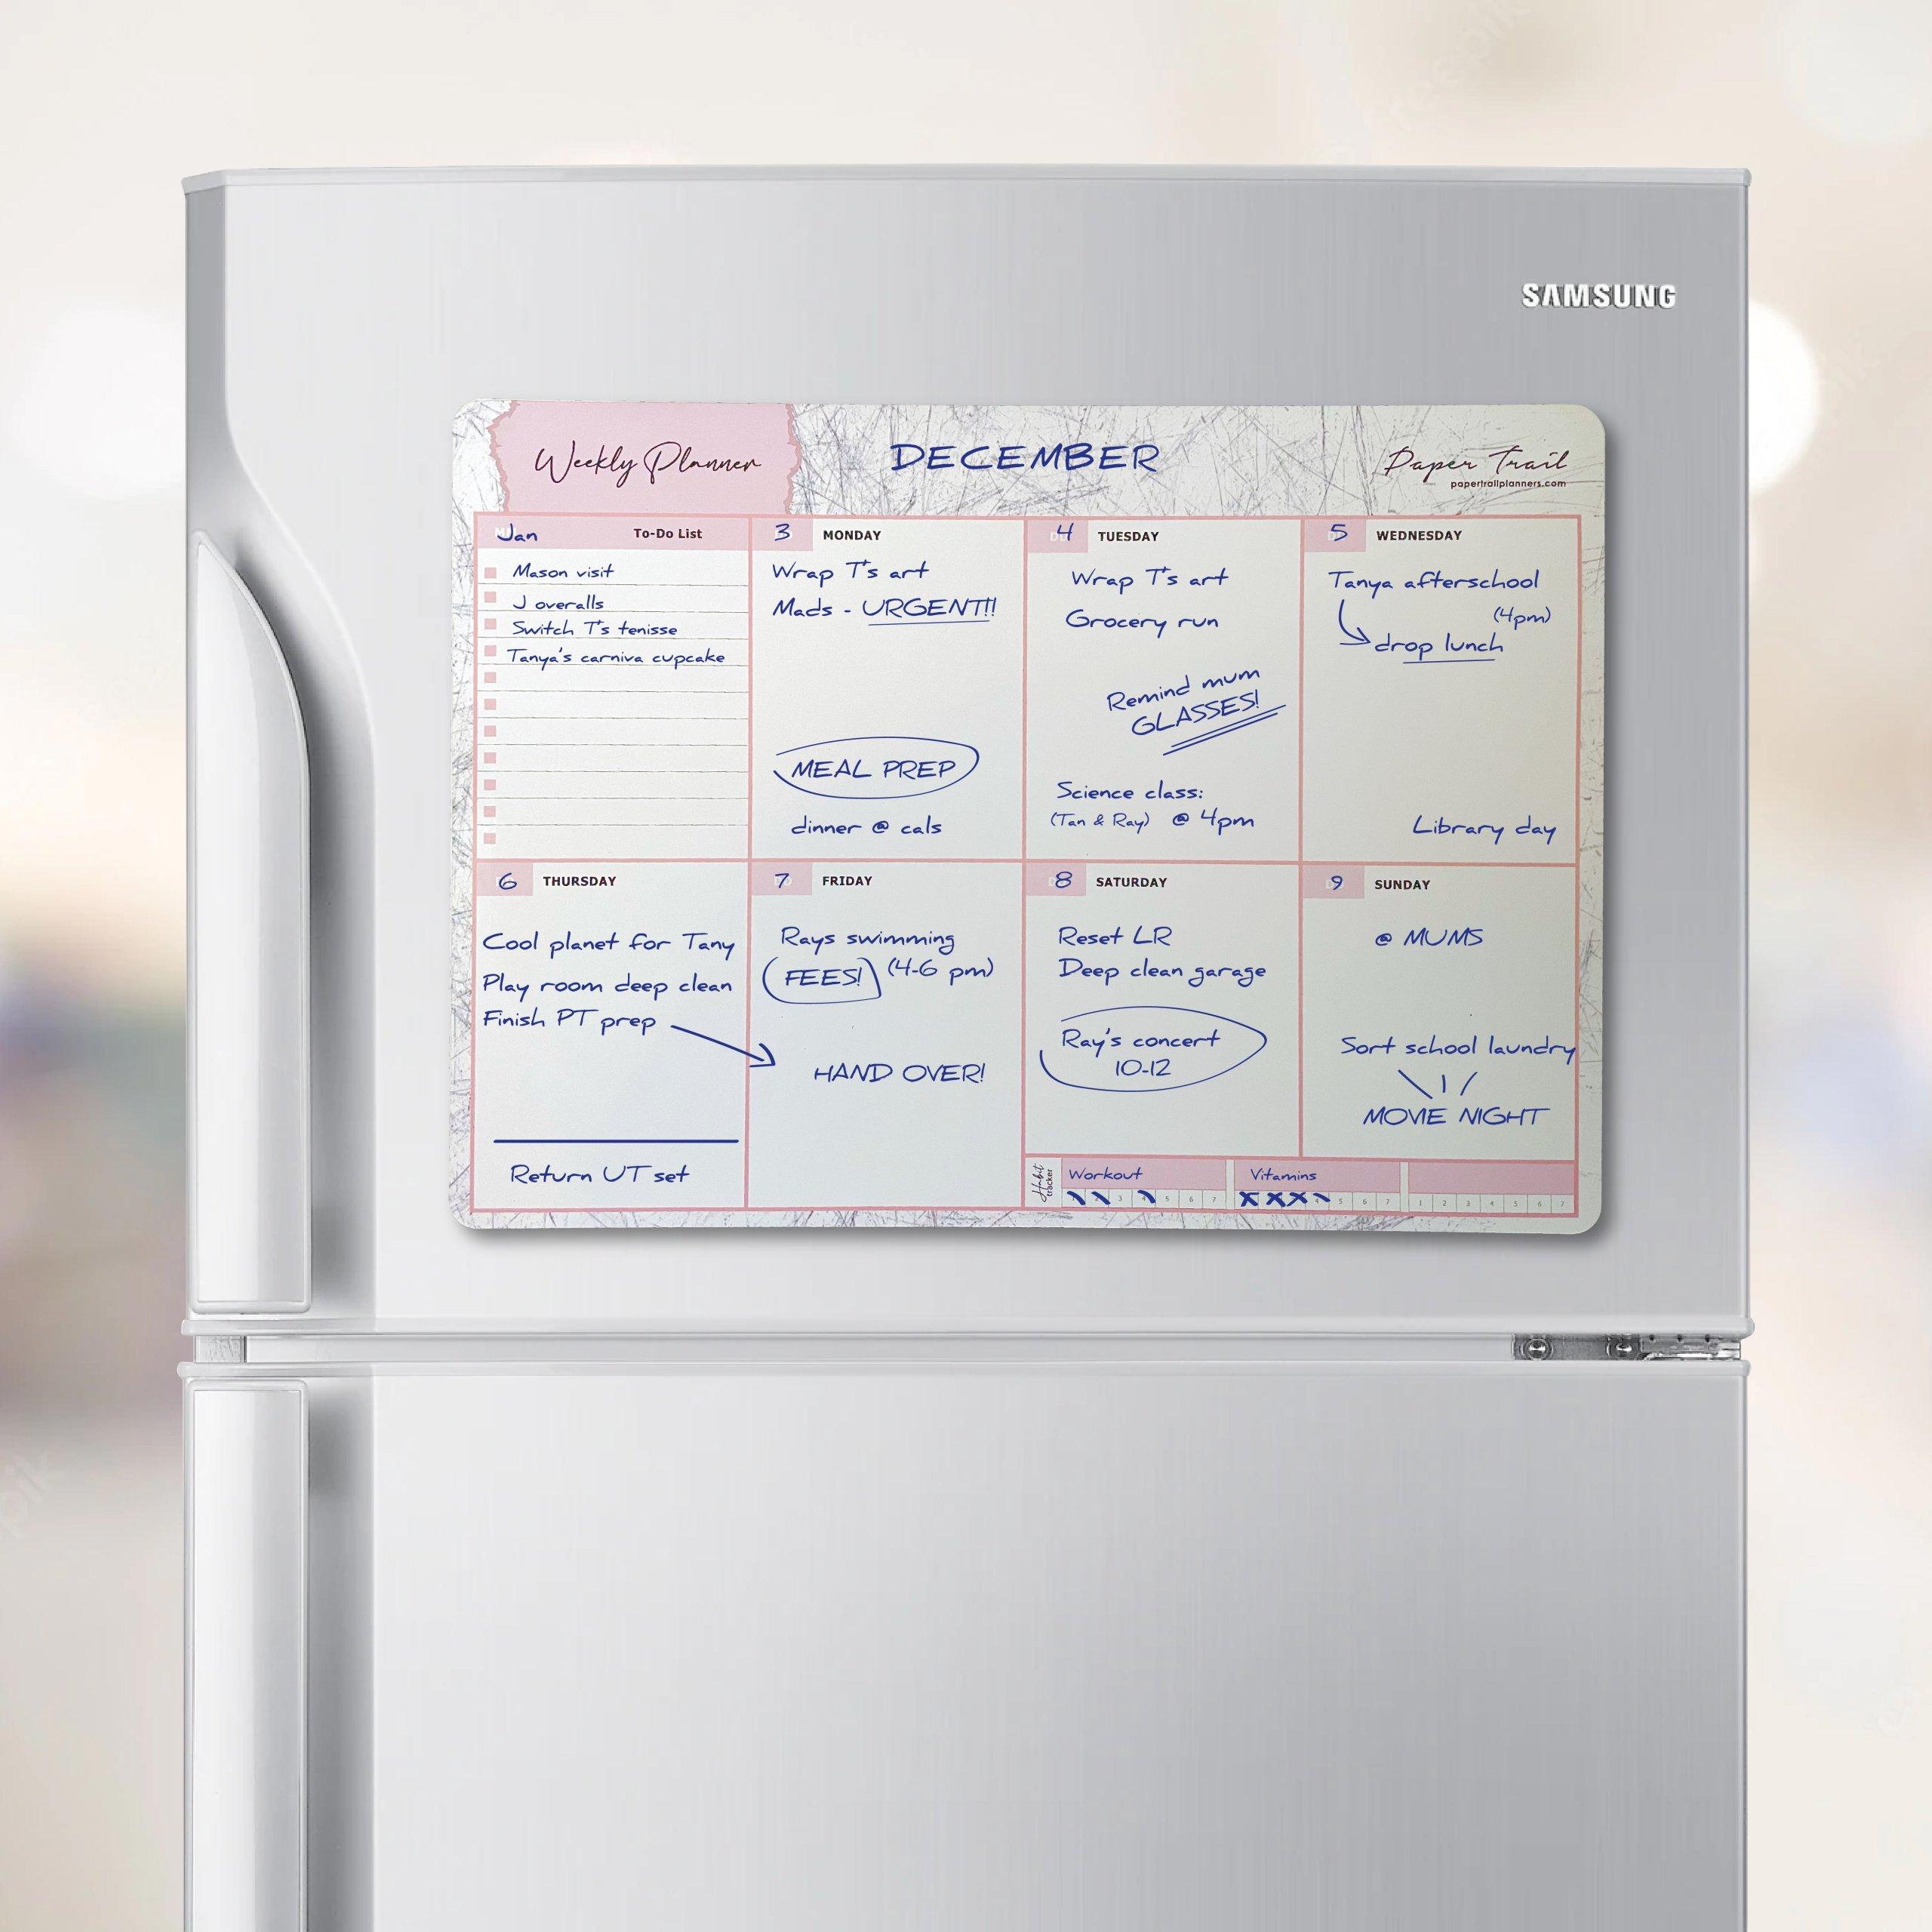 SAMSUNG
Weekly Planner
DECEMBER
Paper Trail
papertrailplanners.com
Jan To-Do List
Mason visit
J overalls
Switch T's tenisse
Tanya's carniva cupcake
3 MONDAY
Wrap T's art
Mads - URGENT!!
MEAL PREP
dinner @ cals
4 TUESDAY
Wrap T's art
Grocery run
Remind mum
GLASSES!
Science class:
(Tan & Ray) @ 4pm
5 WEDNESDAY
Tanya afterschool
(4pm)
drop lunch
Library day
6 THURSDAY
Cool planet for Tany
Play room deep clean
Finish PT prep
Return UT set
7 FRIDAY
Rays swimming
FEES! (4-6 pm)
HAND OVER!
8 SATURDAY
Reset LR
Deep clean garage
Ray's concert
10-12
9 SUNDAY
@ MUMS
Sort school laundry
MOVIE NIGHT
Habit
tracker
Workout
3 5 6 7
Vitamins
5 6 7
1 2 3 4 5 6 7